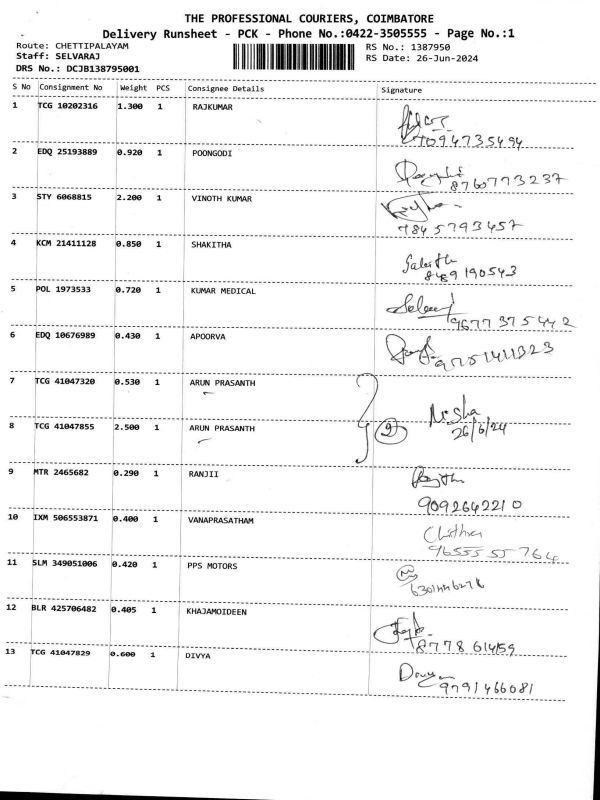 THE PROFESSIONAL COURIERS, COIMBATORE
Delivery Runsheet - PCK - Phone No.:0422-3505555 - Page No.:1
Route: CHETTIPALAYAM
Staff: SELVARAJ
DRS No.: DCJB138795001
RS No.: 1387950
RS Date: 26-Jun-2024
S No Consignment No Weight PCS Consignee Details Signature
1 TCG 10202316 1.300 1 RAJKUMAR
7094735494
2 EDQ 25193889 0.920 1 POONGODI
8760773237
3 STY 6068815 2.200 1 VINOTH KUMAR
7845793457
4 KCM 21411128 0.850 1 SHAKITHA
8489190543
5 POL 1973533 0.720 1 KUMAR MEDICAL
9677375442
6 EDQ 10676989 0.430 1 APOORVA
9751411323
7 TCG 41047320 0.530 1 ARUN PRASANTH
Nisha
8 TCG 41047855 2.500 1 ARUN PRASANTH
2 26/6/24
9 MTR 2465682 0.290 1 RANJII
9092642210
10 IXM 506553871 0.400 1 VANAPRASATHAM
Chithra
9655555764
11 SLM 349051006 0.420 1 PPS MOTORS
12 BLR 425706482 0.405 1 KHAJAMOIDEEN
13 TCG 41047829 0.600 1 DIVYA
9791466081